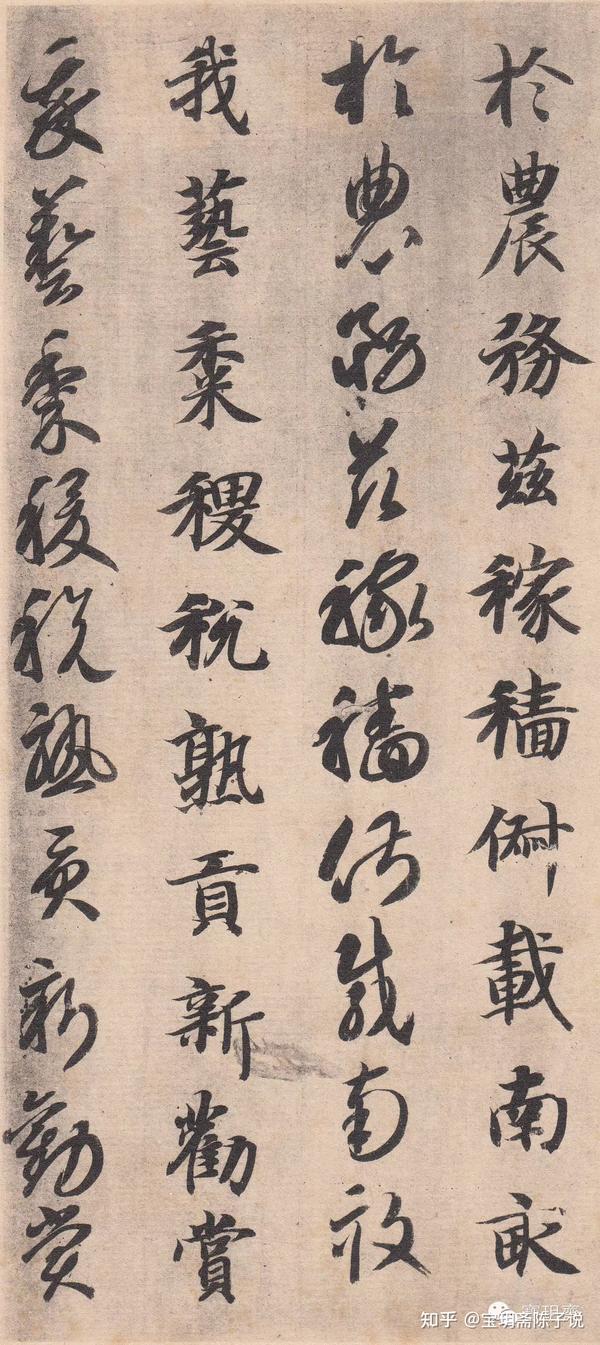 於農務茲稼穡俶載南畝
於農務茲稼穡俶載南畝
我藝黍稷稅熟貢新勸賞
我藝黍稷稅熟貢新勸賞
知乎 @宝玥斋陈子说
宝玥斋